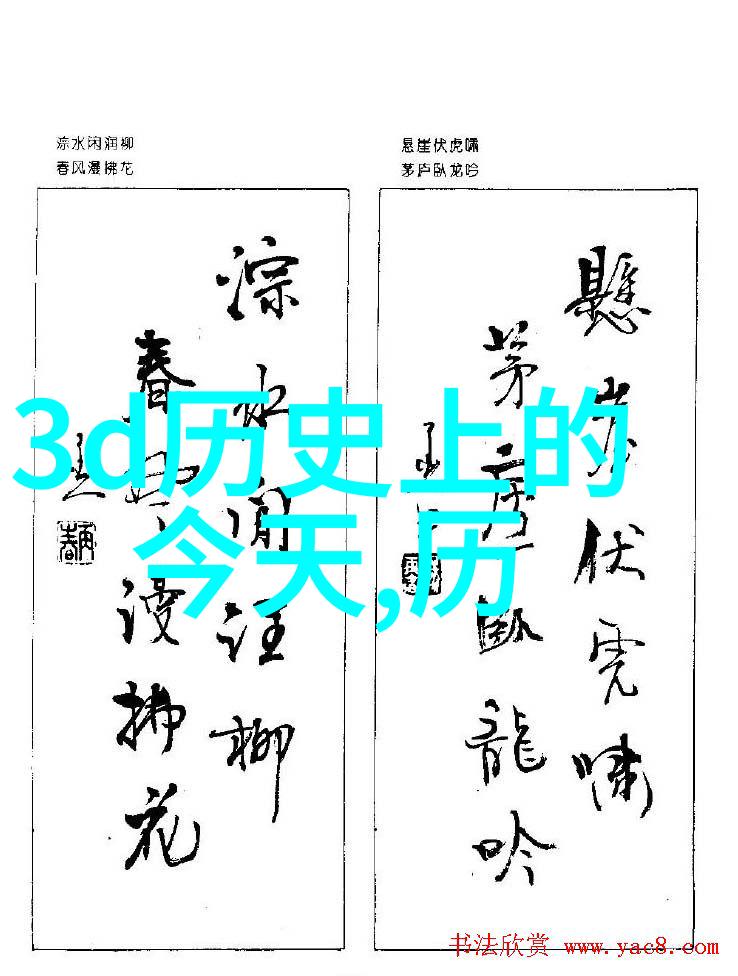 淙水闲润柳
春风漫拂花
悬崖伏虎啸
茅庐卧龙吟
淙水闲注柳
春风漫拂花
懸崖伏虎嘯
茅庐臥龍吟
3d历史上的
今天,历
书法欣赏 www.yac8.com